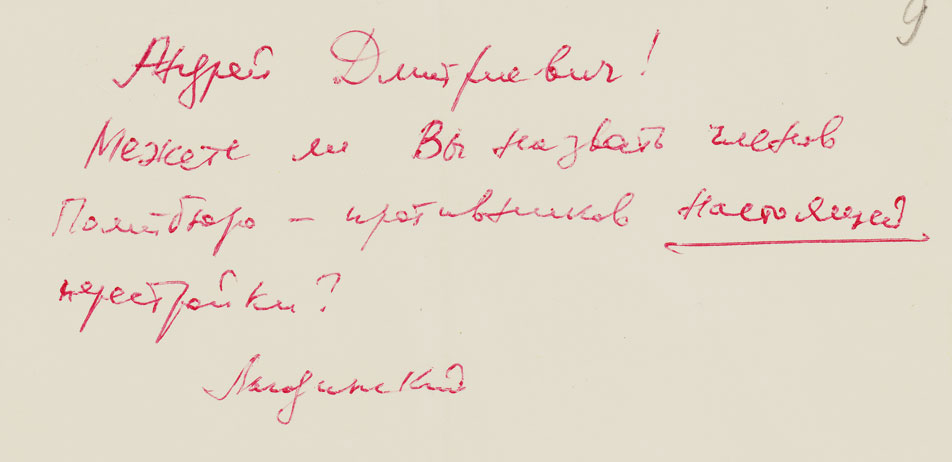 9
Андрей Дмитриевич!
Можете ли Вы назвать членов
Политбюро – противников настоящей
перестройки?